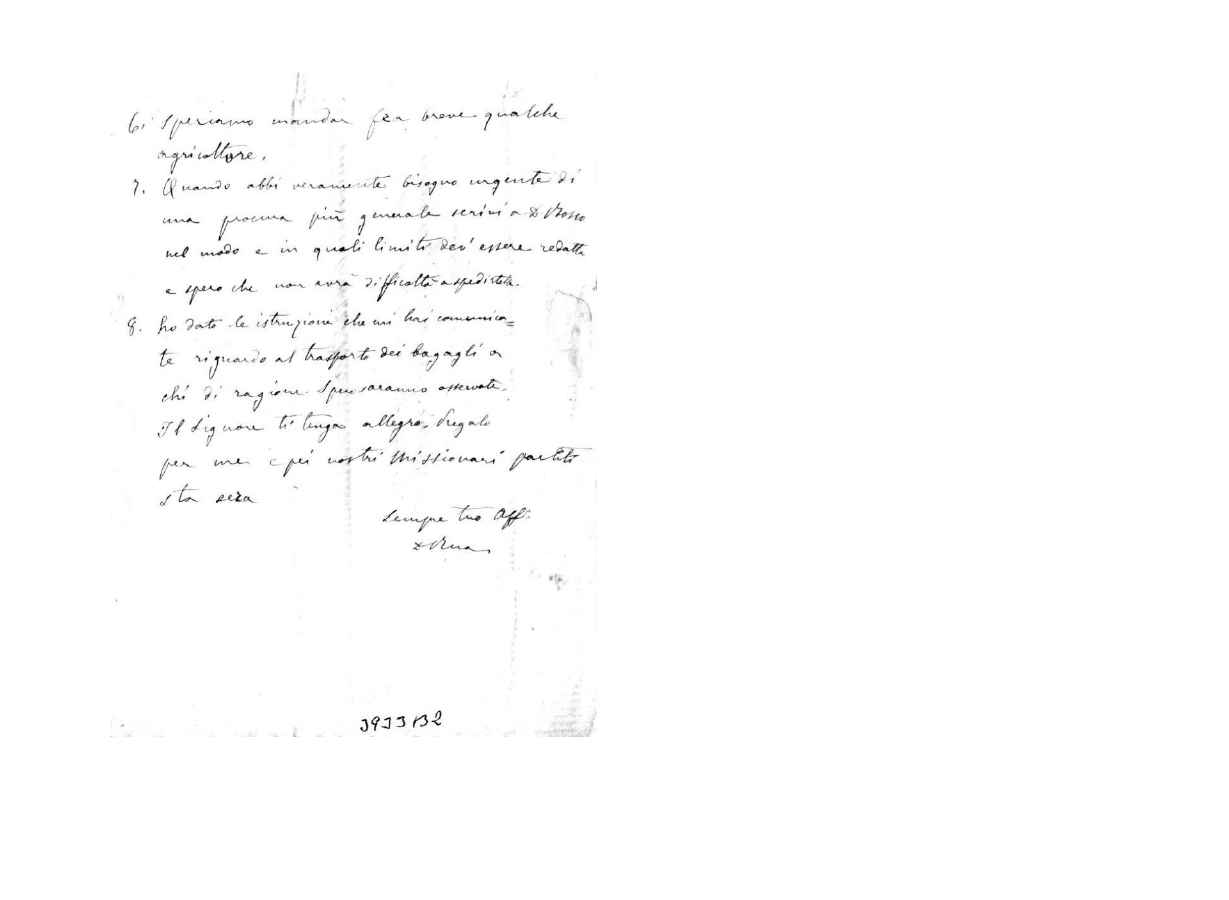 6. Speriamo mandar fra breve qualche
agricoltore.
7. Quando abbi veramente bisogno urgente di
una procura più generale scrivi a D Bosco
nel modo e in quali limiti dev' essere redatta
e spero che non avrà difficoltà a spedirtela.
8. ho dato le istruzioni che mi hai comunica=
te riguardo al trasporto dei bagagli a
chi di ragione. Spero saranno osservate.
Il Signore ti tenga allegro. Pregalo
per me e pei nostri Missionari partiti
sta sera
Sempre tuo Aff.
D Rua
3933 B2